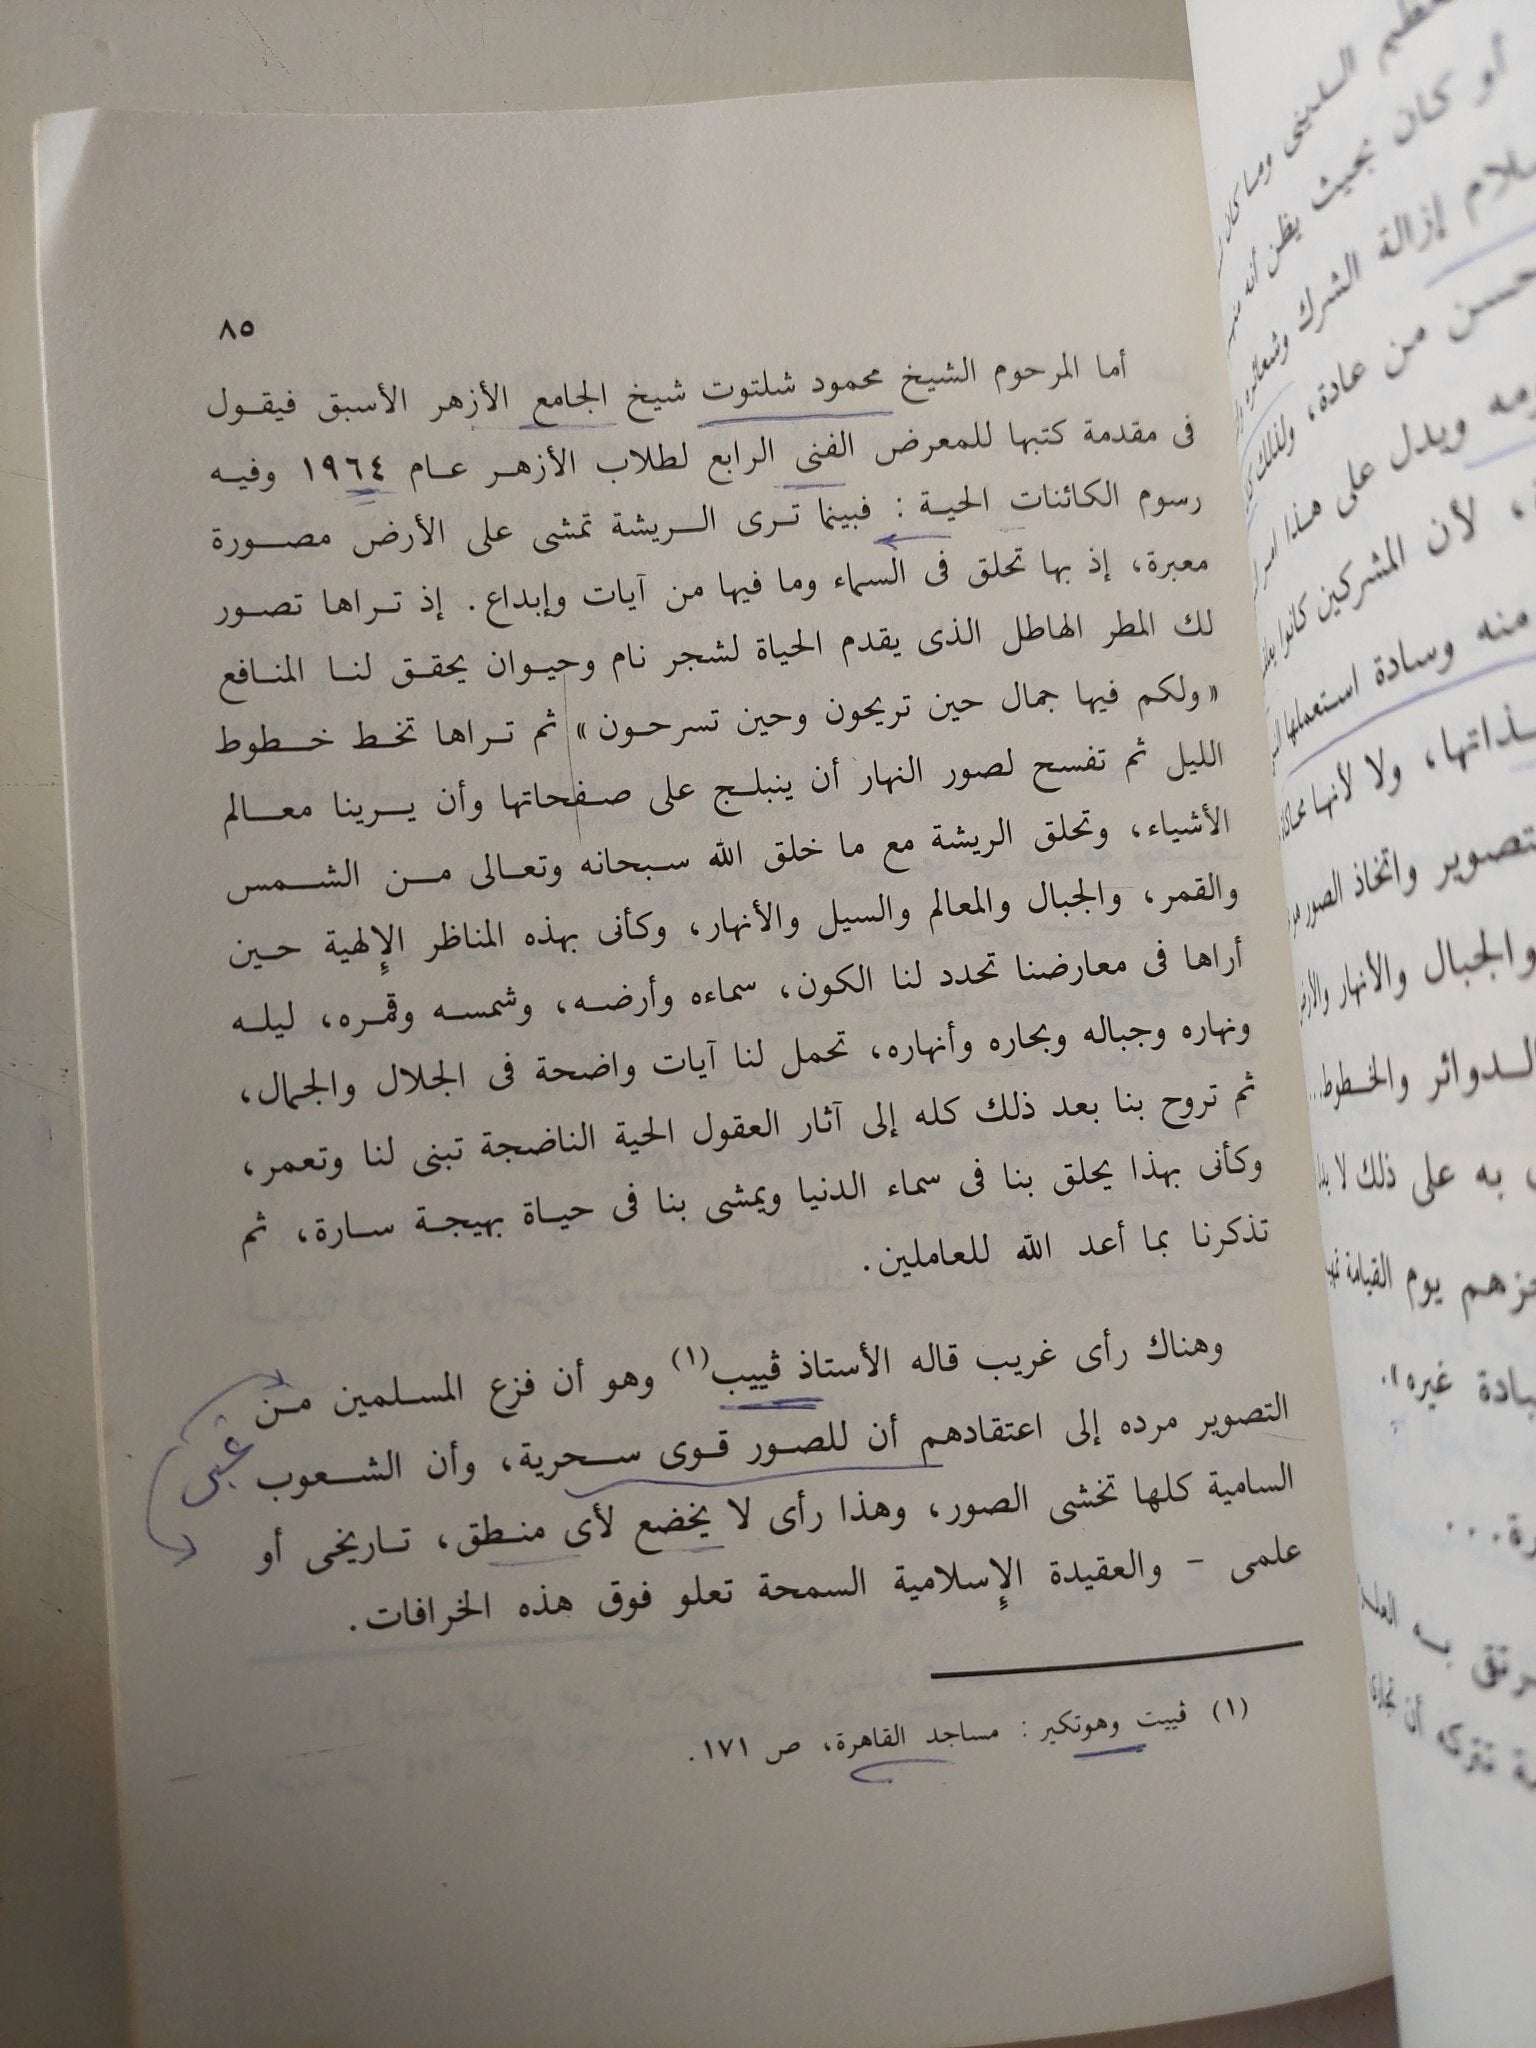 ٨٥
أما المرحوم الشيخ محمود شلتوت شيخ الجامع الأزهر الأسبق فيقول
فى مقدمة كتبها للمعرض الفنى الرابع لطلاب الأزهر عام ١٩٦٤ وفيه
رسوم الكائنات الحية : فبينما ترى الريشة تمشى على الأرض مصورة
معبرة، إذ بها تحلق فى السماء وما فيها من آيات وإبداع. إذ تراها تصور
لك المطر الهاطل الذى يقدم الحياة لشجر نام وحيوان يحقق لنا المنافع
« ولكم فيها جمال حين تريحون وحين تسرحون » ثم تراها تخط خطوط
الليل ثم تفسح لصور النهار أن ينبلج على صفحاتها وأن يرينا معالم
الأشياء، وتحلق الريشة مع ما خلق الله سبحانه وتعالى من الشمس
والقمر، والجبال والمعالم والسيل والأنهار، وكأنى بهذه المناظر الإلهية حين
أراها فى معارضنا تحدد لنا الكون، سماءه وأرضه، وشمسه وقمره، ليله
ونهاره وجباله وبحاره وأنهاره، تحمل لنا آيات واضحة فى الجلال والجمال،
ثم تروح بنا بعد ذلك كله إلى آثار العقول الحية الناضجة تبنى لنا وتعمر،
وكأنى بهذا يحلق بنا فى سماء الدنيا ويمشى بنا فى حياة بهيجة سارة، ثم
تذكرنا بما أعد الله للعاملين.
وهناك رأى غريب قاله الأستاذ ڤييب(١) وهو أن فزع المسلمين من
التصوير مرده إلى اعتقادهم أن للصور قوى سحرية، وأن الشعوب
السامية كلها تخشى الصور، وهذا رأى لا يخضع لأى منطق، تاريخى أو
علمى - والعقيدة الإسلامية السمحة تعلو فوق هذه الخرافات.
غبى
(١) ڤييت وهوتكير : مساجد القاهرة، ص ١٧١.
أو كان بحيث يظن أنه
إزالة الشرك
حسن من عادة، ولذلك
ويدل على هذا
، لأن المشركين كانوا
منه وسادة استعملها
لذاتها، ولا لأنها
واتخاذ الصور
والجبال والأنهار
الدوائر والخطوط...
به على ذلك لا
يوم القيامة
غيره».
به
تتركه أن